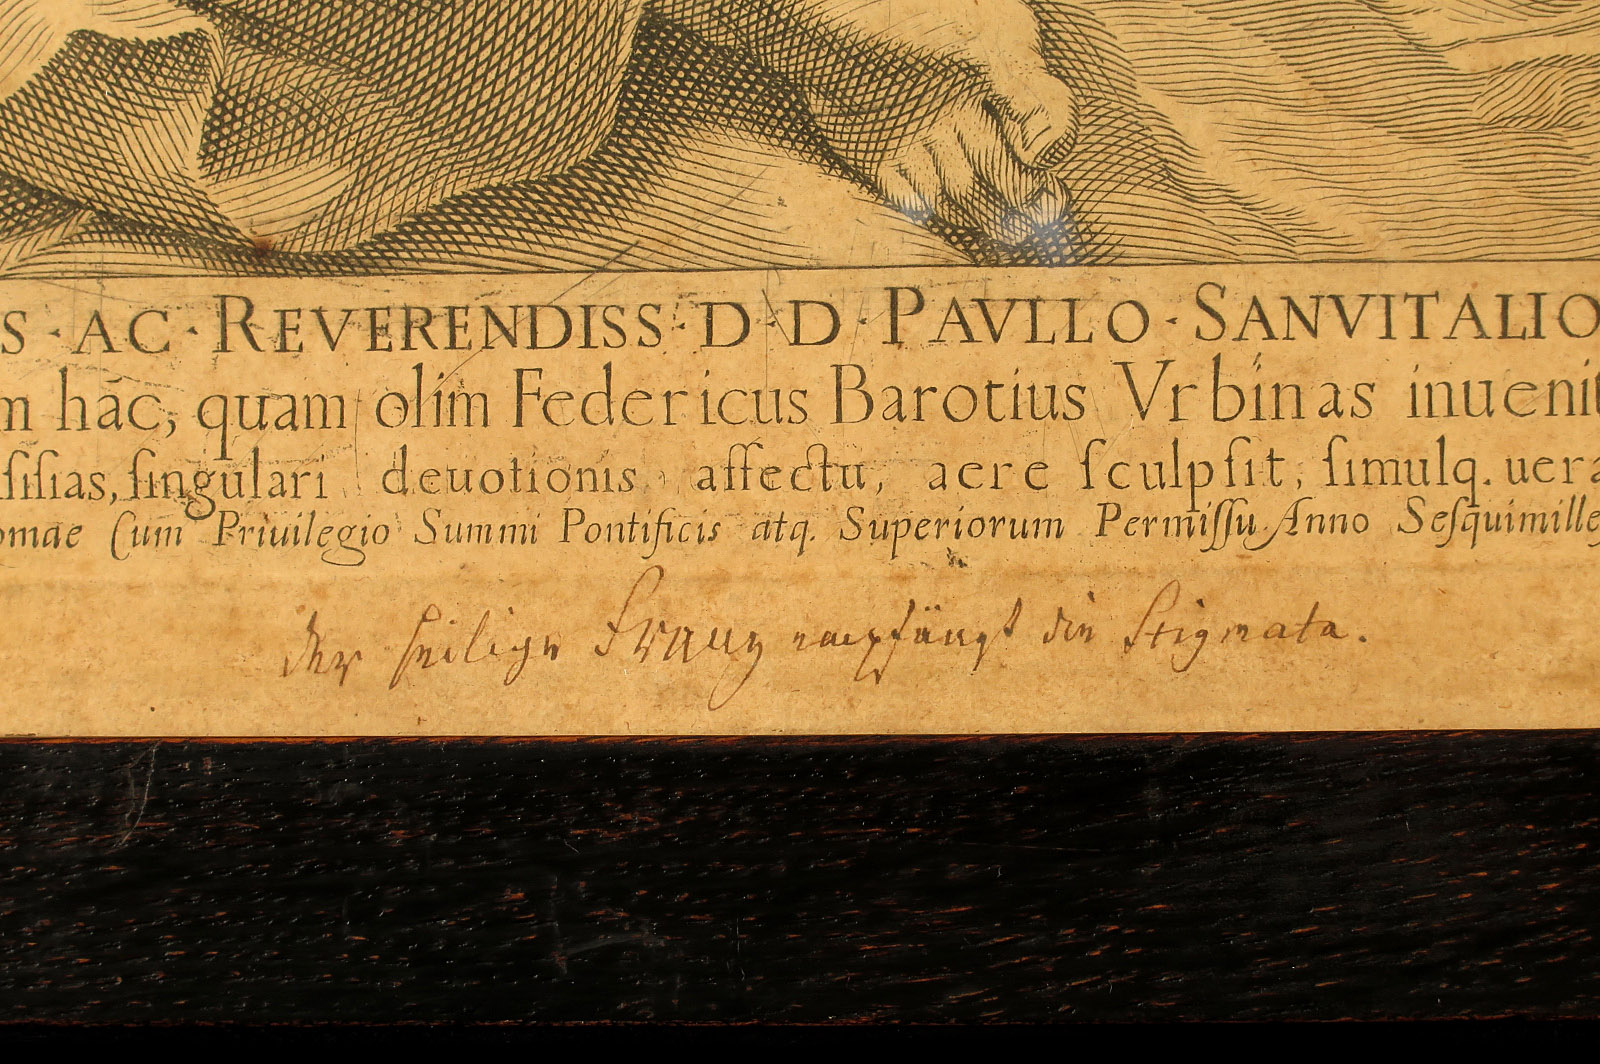 S · AC · REVERENDISS · D · D · PAVLLO · SANVITALIO
m hāc, quam olim Federicus Barotius Vrbinas inuenit
ſiſias, ſingulari deuotionis affectu, aere ſculpſit, ſimulq. uera
omae Cum Priuilegio Summi Pontificis atq. Superiorum Permiſſu Anno Seſquimilleſ
der heilige Franz empfängt die Stigmata.